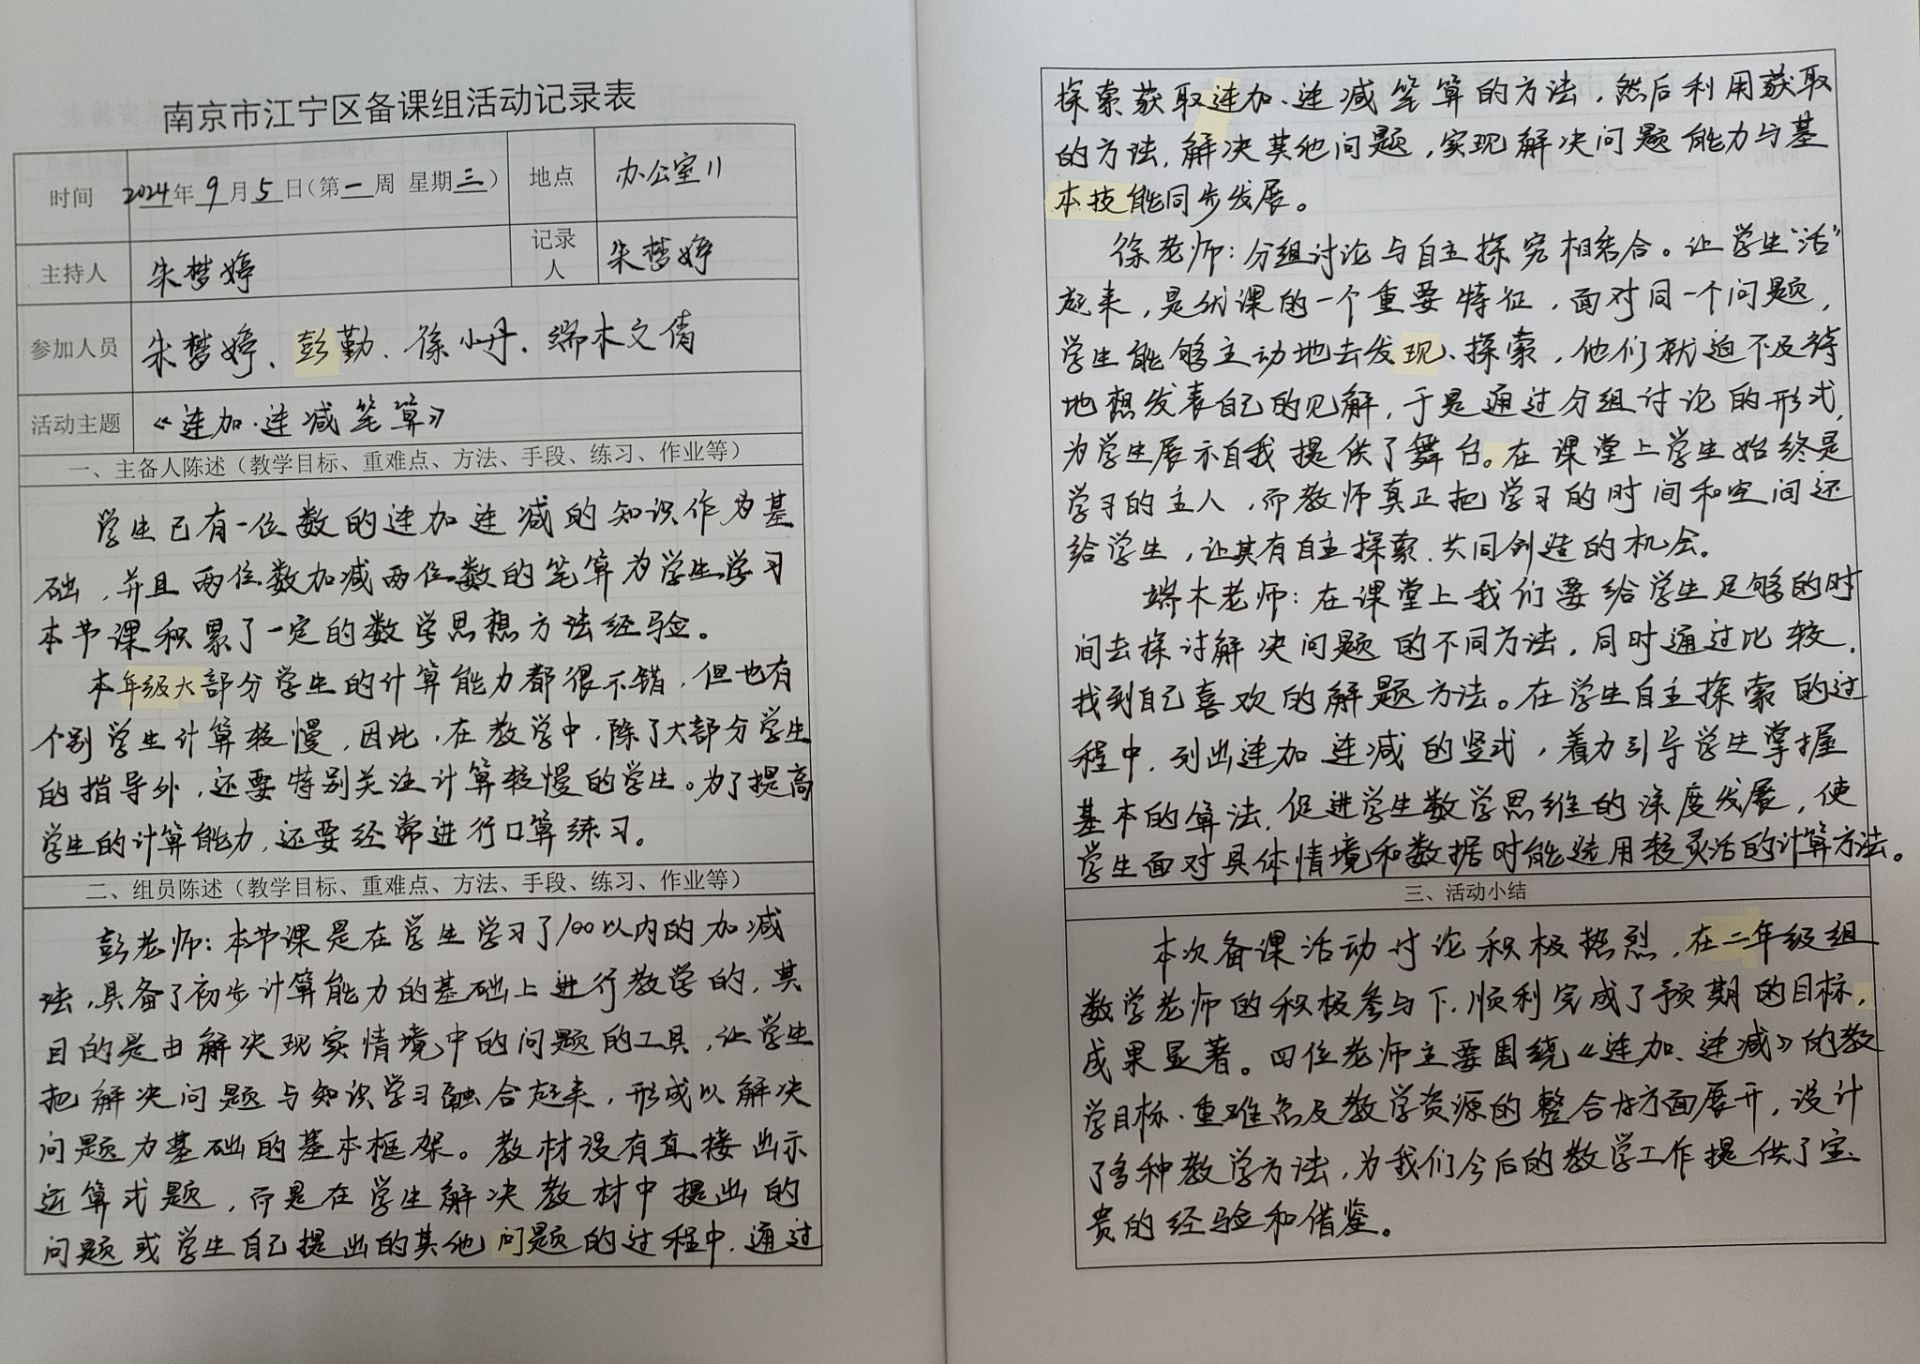 南京市江宁区备课组活动记录表
时间 2024年9月5日(第一周 星期三) 地点 办公室11
主持人 朱梦婷 记录人 朱梦婷
参加人员 朱梦婷、彭勤、徐小丹、端木文倩
活动主题 《连加、连减笔算》
一、主备人陈述（教学目标、重难点、方法、手段、练习、作业等）
学生已有一位数的连加连减的知识作为基
础，并且两位数加减两位数的笔算为学生学习
本节课积累了一定的数学思想方法经验。
本年级大部分学生的计算能力都很不错，但也有
个别学生计算较慢，因此，在教学中，除了大部分学生
的指导外，还要特别关注计算较慢的学生。为了提高
学生的计算能力，还要经常进行口算练习。
二、组员陈述（教学目标、重难点、方法、手段、练习、作业等）
彭老师：本节课是在学生学习了100以内的加减
法，具备了初步计算能力的基础上进行教学的，其
目的是由解决现实情境中的问题的工具，让学生
把解决问题与知识学习融合起来，形成以解决
问题为基础的基本框架。教材没有直接出示
运算式题，而是在学生解决教材中提出的
问题或学生自己提出的其他问题的过程中，通过
探索获取连加、连减笔算的方法，然后利用获取
的方法，解决其他问题，实现解决问题能力与基
本技能同步发展。
徐老师：分组讨论与自主探究相结合。让学生“活”
起来，是优课的一个重要特征，面对同一个问题，
学生能够主动地去发现、探索，他们就迫不及待
地想发表自己的见解，于是通过分组讨论的形式，
为学生展示自我提供了舞台。在课堂上学生始终是
学习的主人，而教师真正把学习的时间和空间还
给学生，让其有自主探索、共同创造的机会。
端木老师：在课堂上我们要给学生足够的时
间去探讨解决问题的不同方法，同时通过比较，
找到自己喜欢的解题方法。在学生自主探索的过
程中，列出连加连减的竖式，着力引导学生掌握
基本的算法，促进学生数学思维的深度发展，使
学生面对具体情境和数据时能选用较灵活的计算方法。
三、活动小结
本次备课活动讨论积极热烈，在二年级组
数学老师的积极参与下，顺利完成了预期的目标，
成果显著。四位老师主要围绕《连加、连减》的教
学目标、重难点及教学资源的整合方面展开，设计
了多种教学方法，为我们今后的教学工作提供了宝
贵的经验和借鉴。